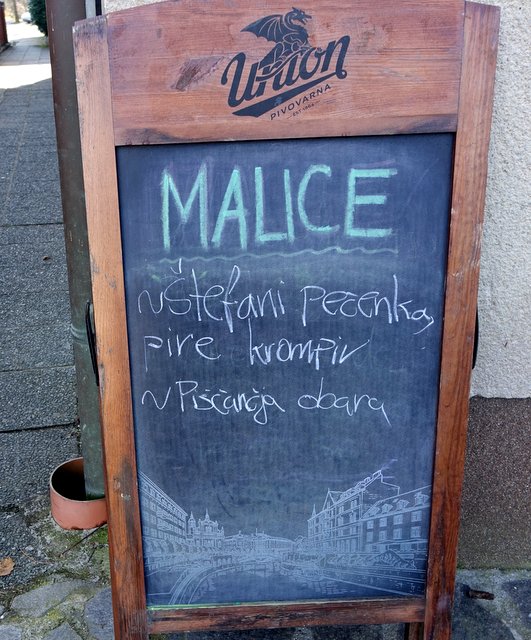 Union
PIVOVARNA
EST 1864
MALICE
~ Štefani pečenka,
pire krompir
~ Piščančja obara